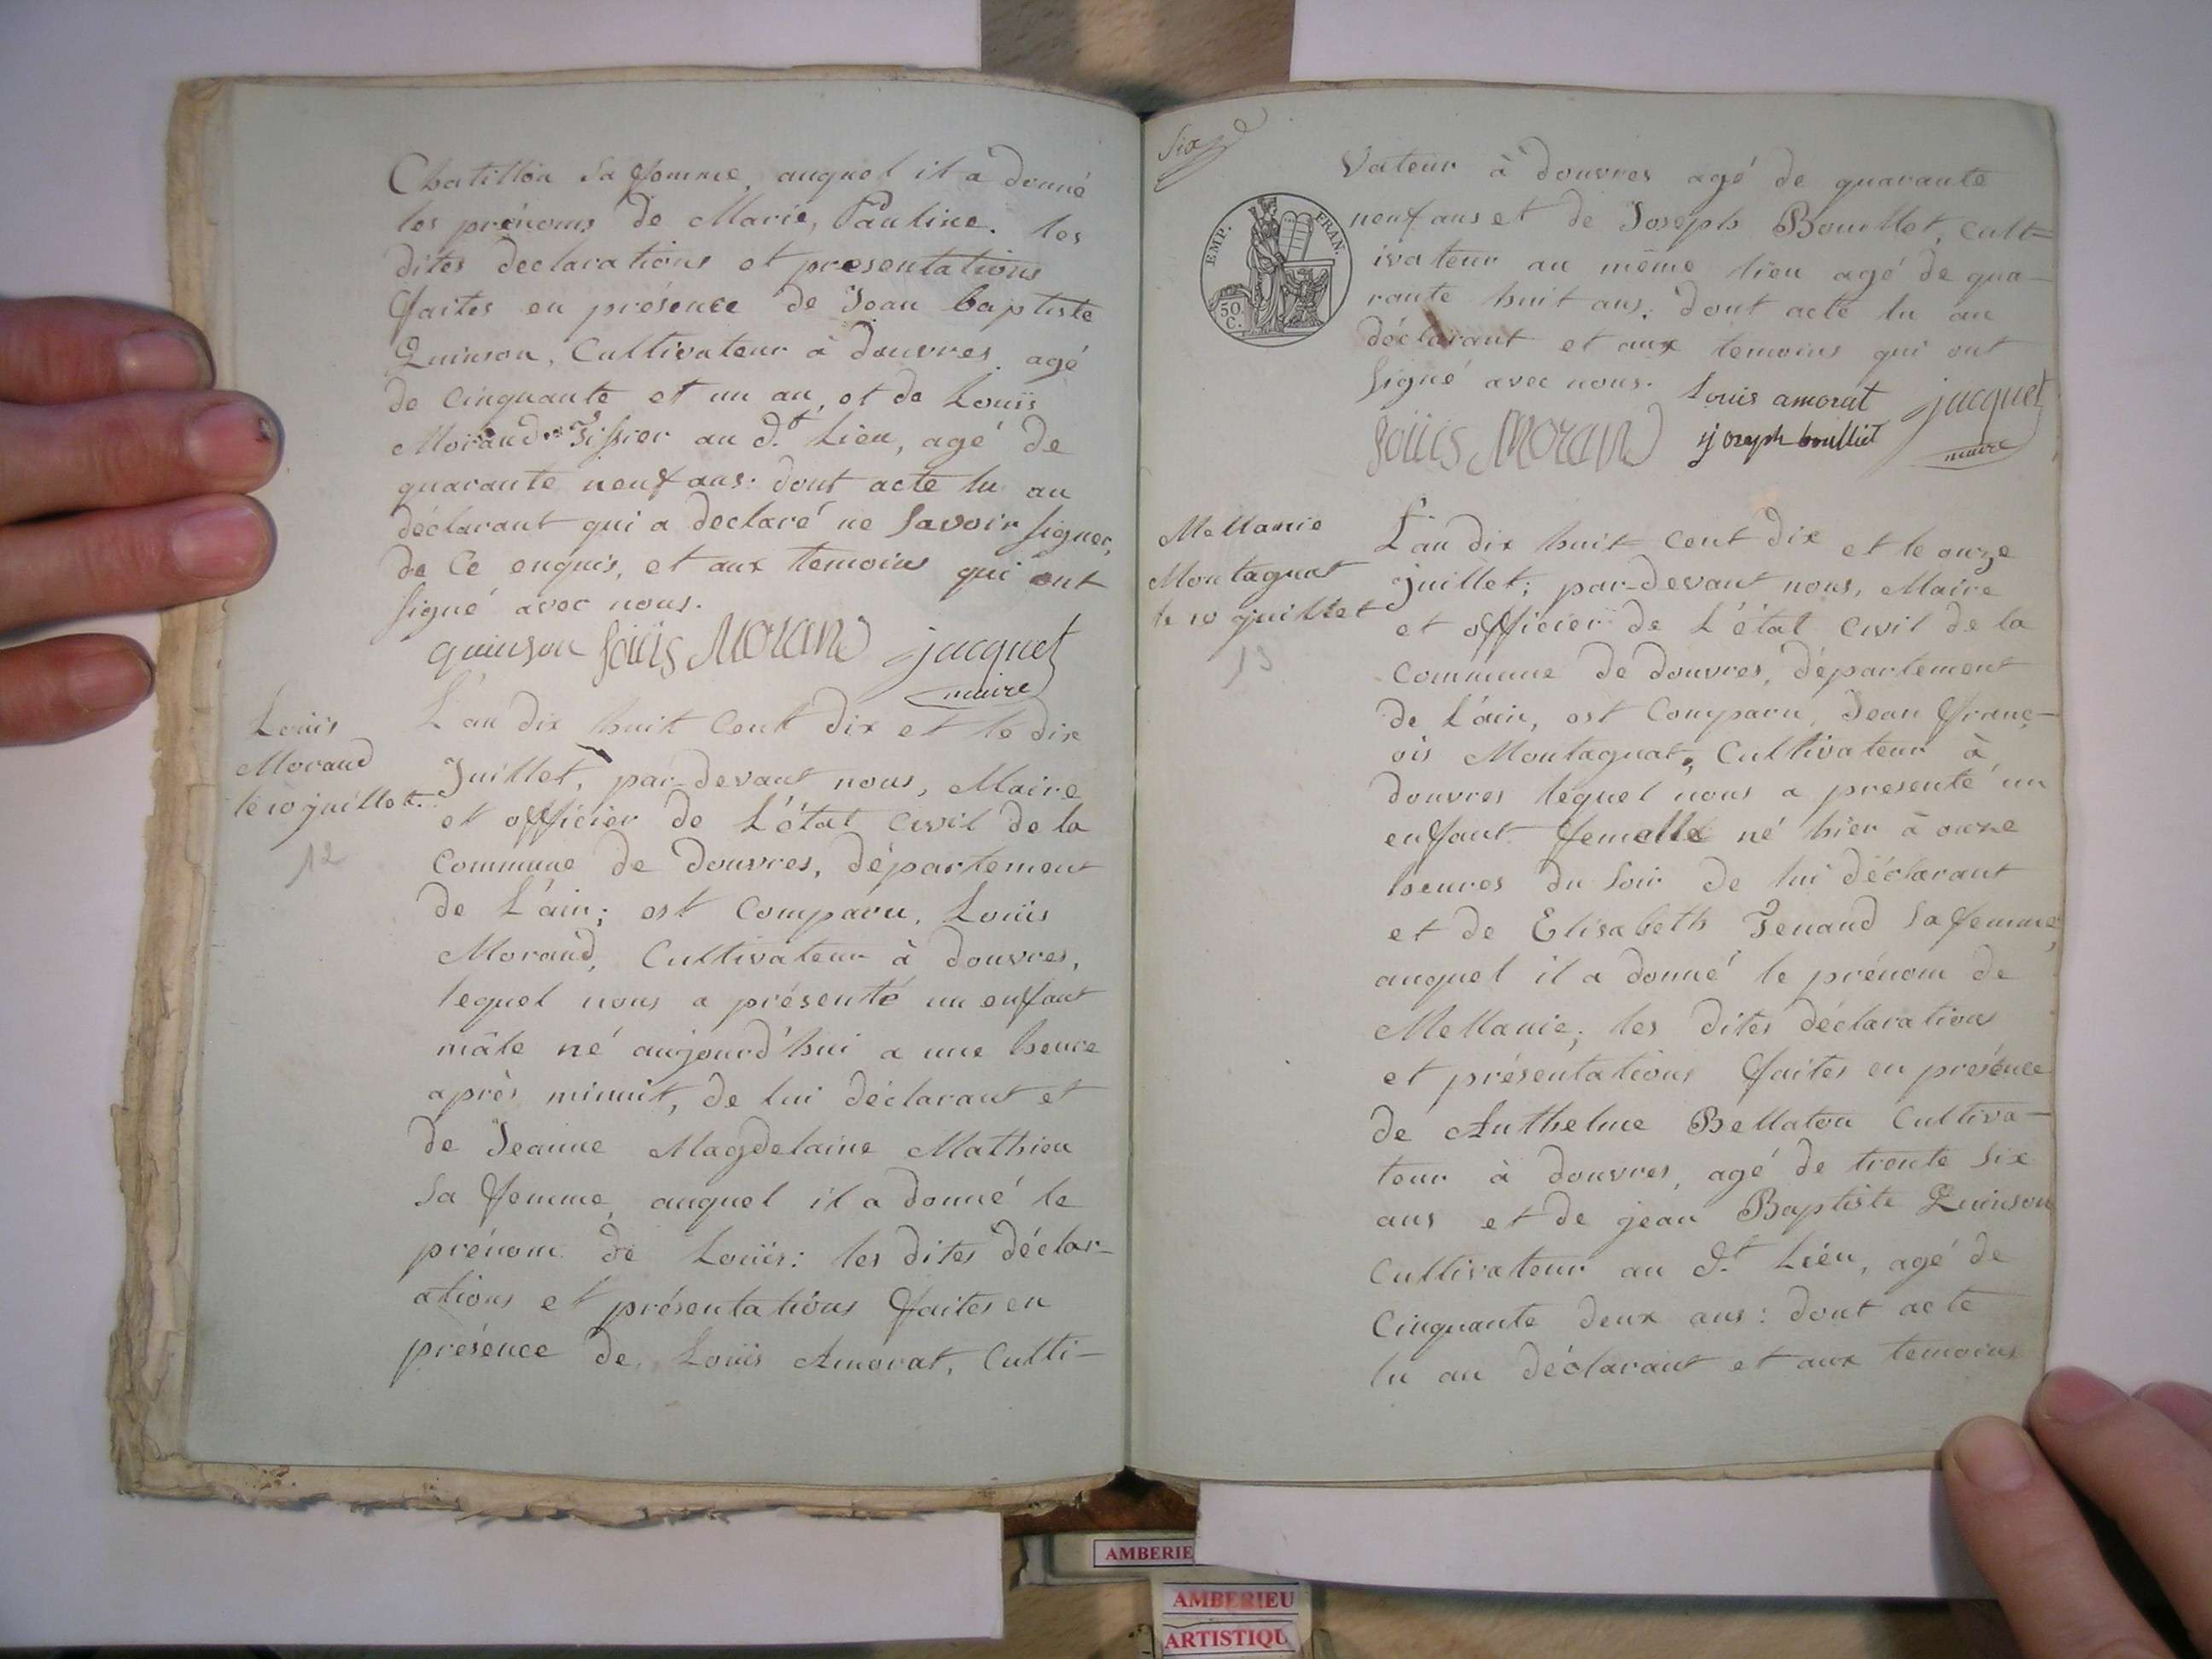 Chatillon Sa femme, auquel il a donné
les prénoms de Marie, Pauline. les
dites declarations et presentations
faites en présence de Jean baptiste
Quinson, Cultivateur à douvres, agé
de Cinquante et un an, et de Louis
Morand Tissier au d.t Lieu, agé de
quarante neuf ans. dont acte lu au
déclarant qui a declaré ne Savoir signer,
de Ce enquis, et aux temoins qui ont
signé avec nous.
quinson Loüis Morand jacquet
maire
Louis
Morand
le 10 juillet.
12
L'an dix huit Cent dix et le dix
Juillet, par-devant nous, Maire
et officier de L'état Civil de la
Commune de Douvres, département
de L'ain; est Comparu, Louis
Morand, Cultivateur à douvres,
lequel nous a présenté un enfant
mâle né aujourd'hui a une heure
après minuit, de lui déclarant et
de Jeanne Magdelaine Mathieu
Sa femme, auquel il a donné le
prénom de Louis: les dites déclar-
ations et présentations faites en
présence de Louis Amorat, Culti-
Six
EMP. FRAN.
50 C.
Vateur à douvres agé de quarante
neuf ans et de Joseph Bouillet, Cult=
ivateur au même lieu agé de qua-
rante huit ans. dont acte lu au
déclarant et aux temoins qui ont
signé avec nous. Louis amorat jacquet
Loüis Morand joseph boulliet maire
Mellanie
Montagnat
le 10 juillet
13
L'an dix huit Cent dix et le onze
juillet; par-devant nous, Maire
et officier de L'état Civil de la
Commune de douvres, département
de L'ain, est Comparu, Jean Franç-
ois Montagnat, Cultivateur à
douvres lequel nous a presenté un
enfant femelle né hier à onze
heures du Soir de lui déclarant
et de Elisabeth Tenand Sa femme,
auquel il a donné le prénom de
Mellanie; les dites déclarations
et présentations faites en présence
de Anthelme Bellaton Cultiva-
teur à douvres, agé de trente Six
ans et de jean Baptiste Quinson
Cultivateur au d.t Lieu, agé de
Cinquante deux ans: dont acte
lu au déclarant et aux temoins
AMBERIE
AMBERIEU
ARTISTIQU